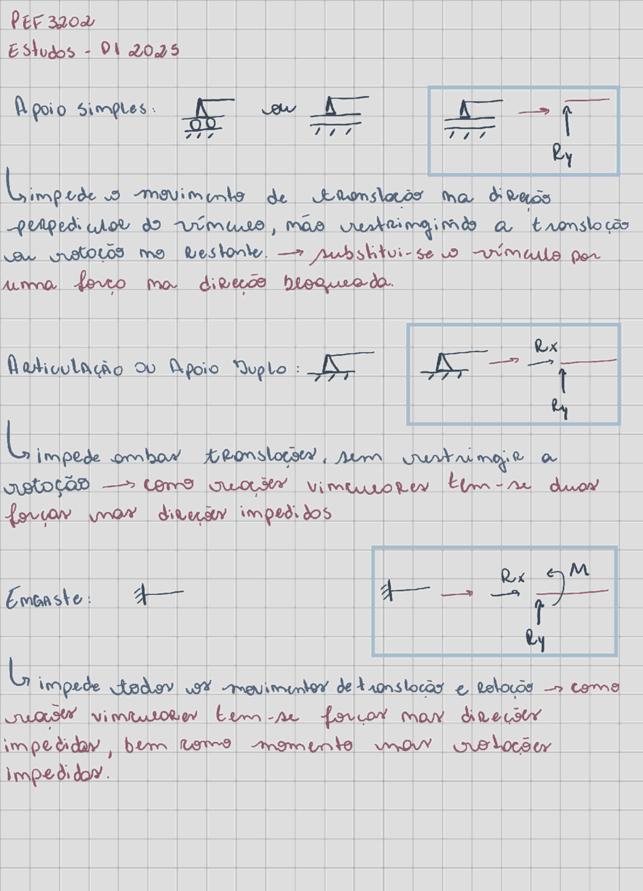 PEF3202
Estudos - P1 2025
Apoio simples: ou
Ry
impede o movimento de translação na direção
perpedicular do vínculo, não restringindo a translação
ou rotação no restante. → substitui-se o vínculo por
uma força na direção bloqueada.
Articulação ou Apoio Duplo:
Rx
Ry
impede ambas translações, sem restringir a
rotação → como reações vinculares tem-se duas
forças nas direções impedidas
Engaste:
Rx M
Ry
impede todos os movimentos de translação e rotação → como
reações vinculares tem-se forças nas direções
impedidas, bem como momento nas rotações
impedidas.